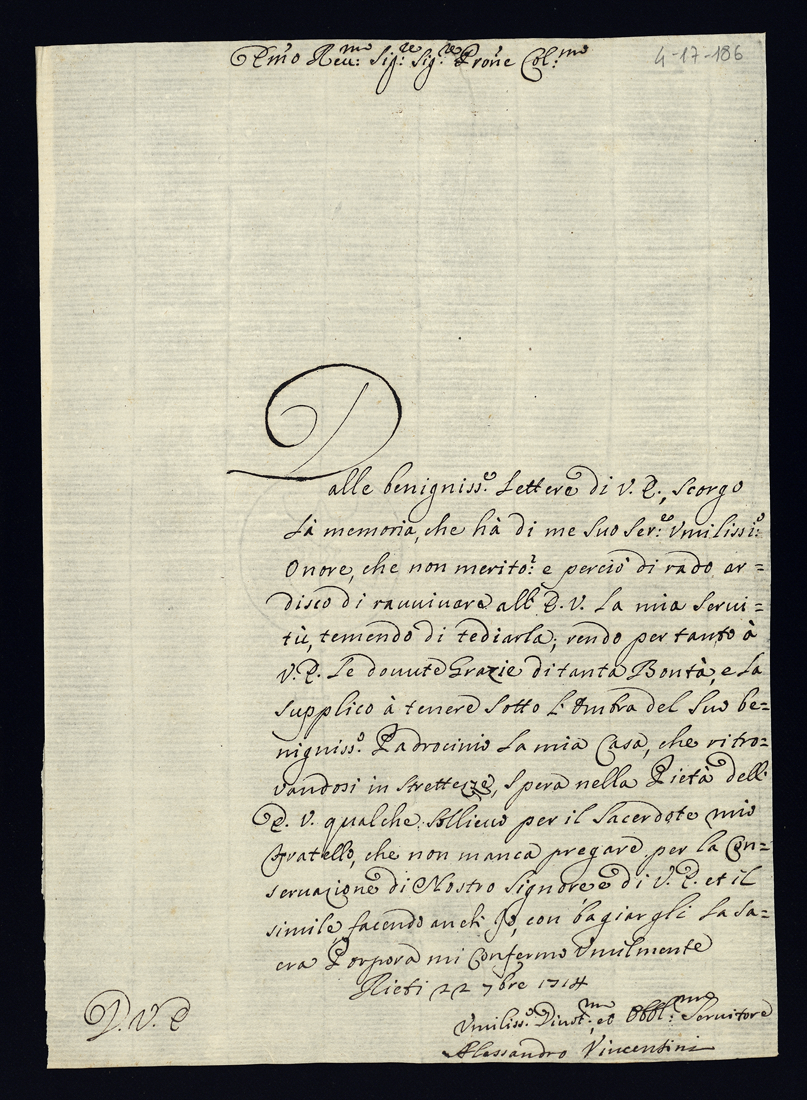 Emo Reu:mo Sig:re Sig:re Prone Col:mo
4-17-186
Dalle benigniss:e Lettere di V. E., scorgo
La memoria, che hà di me suo Ser:e Vmilissi:o
Onore, che non merito: e perciò di rado ar=
disco di rauuiuare all' E. V. La mia serui=
tù, temendo di tediarla; rendo per tanto à
V. E. Le douute Grazie di tanta Bontà, e La
supplico à tenere sotto L'Ombra del suo be=
nigniss:o Padrocinio La mia Casa, che ritro=
vandosi in strettezze, spera nella Pietà dell'
E. V. qualche sollieuo per il Sacerdote mio
Fratello, che non manca pregare per la Con=
seruazione di Nostro Signore e di V. E. et il
simile facendo anch' Io, con bagiargli La Sa=
cra Porpora mi confermo Vmilmente
Rieti 22 7bre 1714
D. V. E
Vmiliss:o Diuot:mo et Obbl:mo Seruitore
Alessandro Vincentini